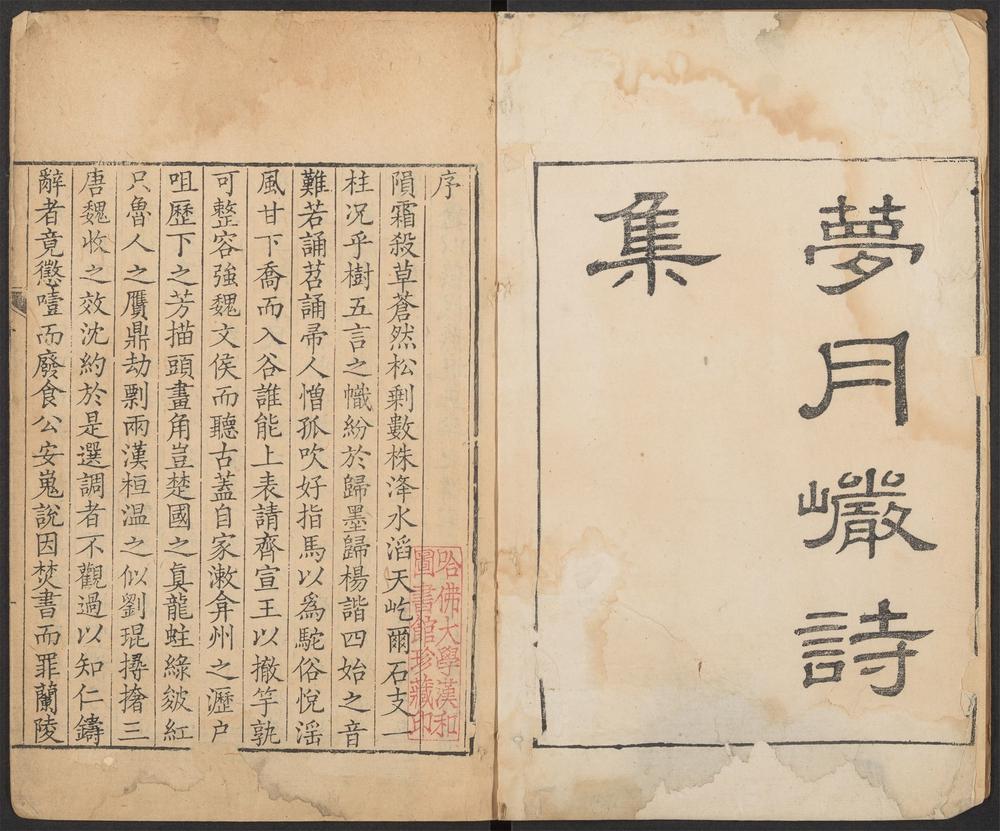 夢月巖詩
集
序
隕霜殺草蒼然松剩數株洚水滔天屹爾石支一
柱况乎樹五言之幟紛於歸墨歸楊諧四始之音
難若誦苕誦帚人憎孤吹好指馬以爲駝俗悅滛
風甘下喬而入谷誰能上表請齊宣王以撤竽孰
可整容強魏文侯而聽古蓋自家漱弇州之瀝户
咀歷下之芳描頭畫角豈楚國之真龍蛀綠皴紅
只魯人之贋鼎劫剽兩漢桓温之似劉琨撏撦三
唐魏收之效沈約於是選調者不觀過以知仁鑄
辭者竟懲噎而廢食公安嵬說因焚書而罪蘭陵
哈佛大學漢和
圖書館珍藏印